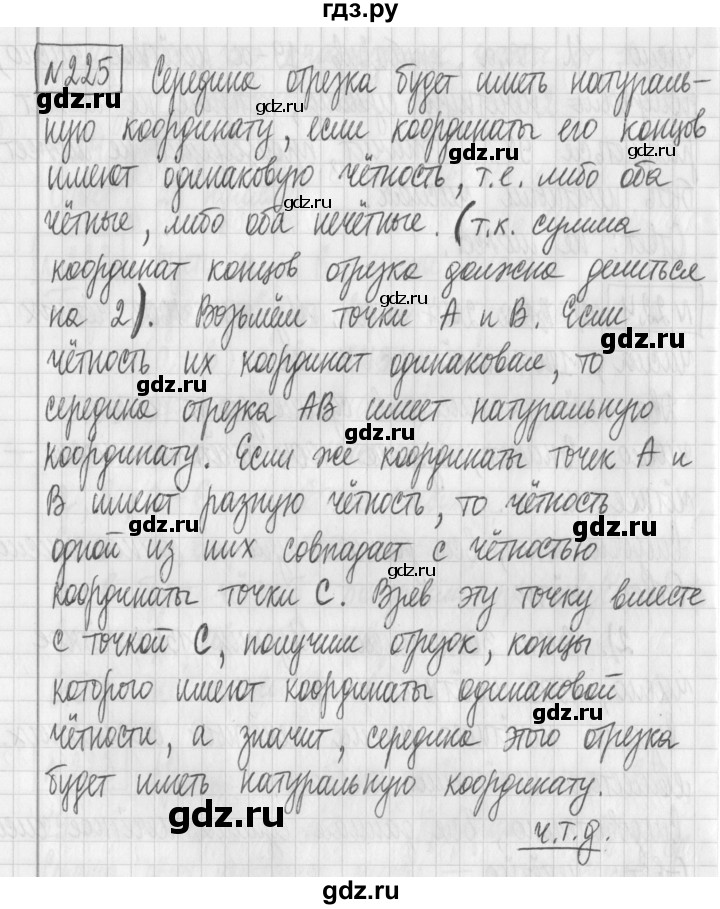 гдз.ру
№225 Середина отрезка будет иметь натураль-
gdz.ru
gdz.ru
ную координату, если координаты его концов
gdz.ru
имеют одинаковую чётность, т.е. либо оба
gdz.ru
чётные, либо оба нечётные. (т.к. сумма
координат концов отрезка должна делиться
gdz.ru
на 2). Возьмём точки А и В. Если
чётность их координат одинаковая, то
gdz.ru
середина отрезка АВ имеет натуральную
gdz.ru
координату. Если же координаты точек А и
В имеют разную чётность, то чётность
gdz.ru
gdz.ru
одной из них совпадает с чётностью
gdz.ru
координаты точки С. Взяв эту точку вместе
с точкой С, получим отрезок, концы
gdz.ru
которого имеют координаты одинаковой
gdz.ru
чётности, а значит, середина этого отрезка
будет иметь натуральную координату.
gdz.ru
ч.т.д.
gdz.ru